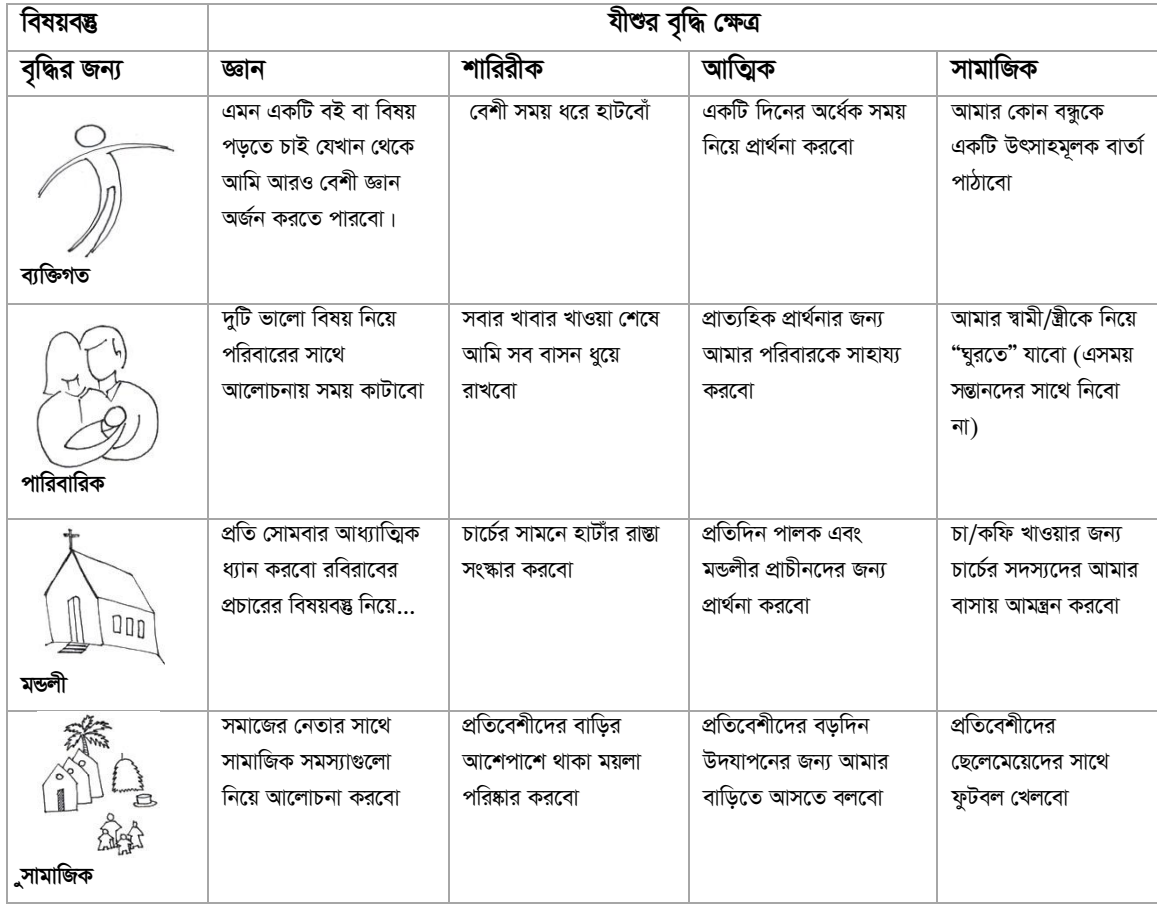 বিষয়বস্তু
যীশুর বৃদ্ধি ক্ষেত্র
বৃদ্ধির জন্য
জ্ঞান
শারিরীক
আত্মিক
সামাজিক
ব্যক্তিগত
এমন একটি বই বা বিষয়
পড়তে চাই যেখান থেকে
আমি আরও বেশী জ্ঞান
অর্জন করতে পারবো।
বেশী সময় ধরে হাটবোঁ
একটি দিনের অর্ধেক সময়
নিয়ে প্রার্থনা করবো
আমার কোন বন্ধুকে
একটি উৎসাহমূলক বার্তা
পাঠাবো
পারিবারিক
দুটি ভালো বিষয় নিয়ে
পরিবারের সাথে
আলোচনায় সময় কাটাবো
সবার খাবার খাওয়া শেষে
আমি সব বাসন ধুয়ে
রাখবো
প্রাত্যহিক প্রার্থনার জন্য
আমার পরিবারকে সাহায্য
করবো
আমার স্বামী/স্ত্রীকে নিয়ে
“ঘুরতে” যাবো (এসময়
সন্তানদের সাথে নিবো
না)
মন্ডলী
প্রতি সোমবার আধ্যাত্মিক
ধ্যান করবো রবিরাবের
প্রচারের বিষয়বস্তু নিয়ে...
চার্চের সামনে হাটাঁর রাস্তা
সংস্কার করবো
প্রতিদিন পালক এবং
মন্ডলীর প্রাচীনদের জন্য
প্রার্থনা করবো
চা/কফি খাওয়ার জন্য
চার্চের সদস্যদের আমার
বাসায় আমন্ত্রন করবো
ুসামাজিক
সমাজের নেতার সাথে
সামাজিক সমস্যাগুলো
নিয়ে আলোচনা করবো
প্রতিবেশীদের বাড়ির
আশেপাশে থাকা ময়লা
পরিষ্কার করবো
প্রতিবেশীদের বড়দিন
উদযাপনের জন্য আমার
বাড়িতে আসতে বলবো
প্রতিবেশীদের
ছেলেমেয়েদের সাথে
ফুটবল খেলবো